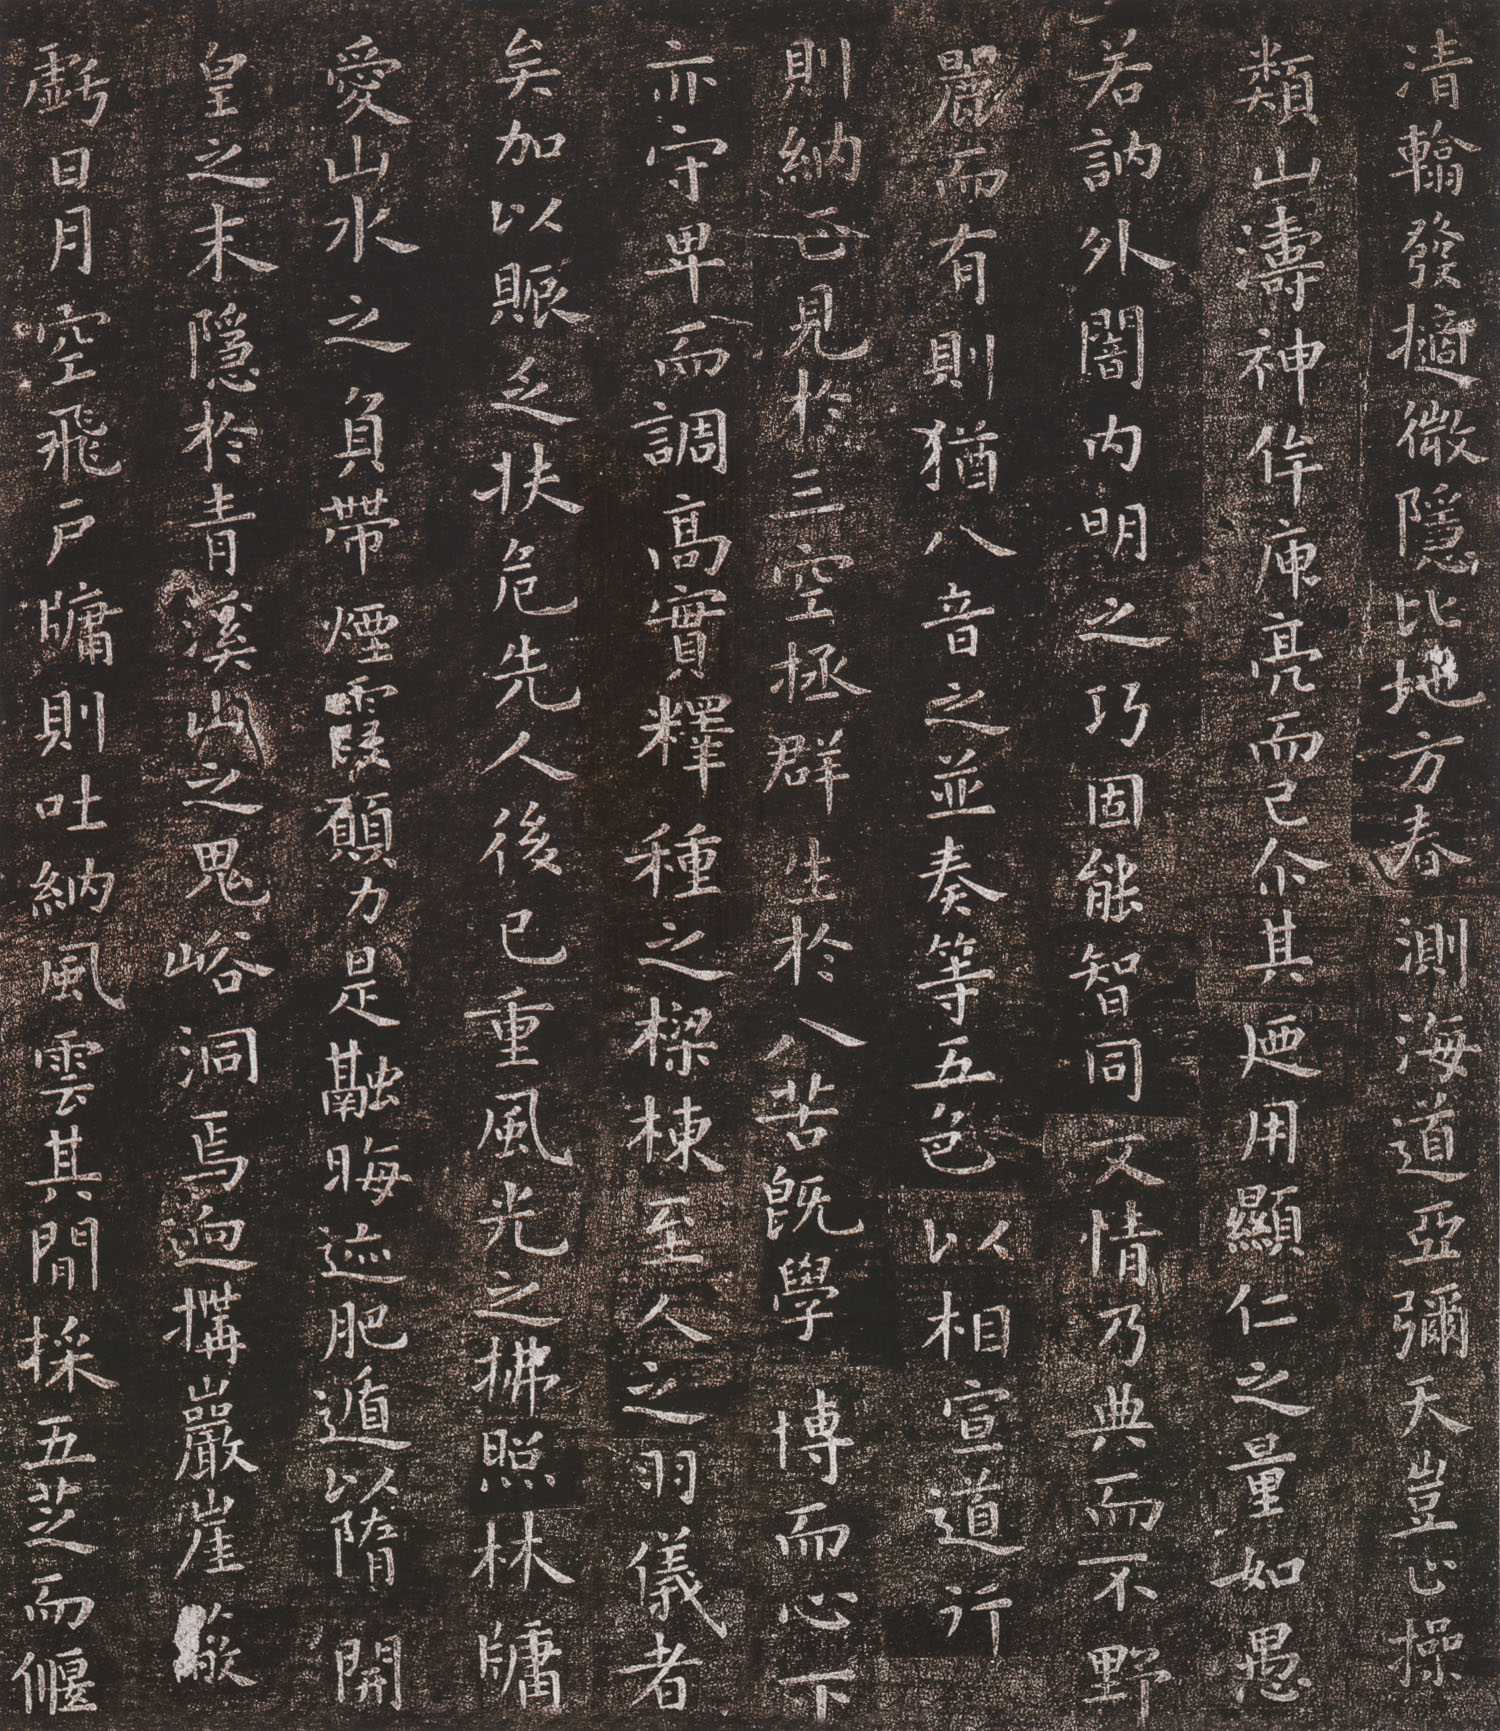 清翰發擿微隱比地方春測海道亞彌天豈止操
類山濤神侔庾亮而已介其迺用顯仁之量如愚
若訥外闇內明之巧固能智同文情乃典而不野
麗而有則猶八音之並奏等五色以相宣道行
則納正見於三空拯群生於八苦既學博而心下
亦守卑而調高實釋種之樑棟至人之羽儀者
矣加以賑乏扶危先人後己重風光之拂照林牖
愛山水之負帶煙霞願力是融晦迹肥遁以隋開
皇之末隱於青溪山之鬼峪洞焉迥搆巖崖蔽
虧日月空飛戶牖則吐納風雲其間採五芝而偃